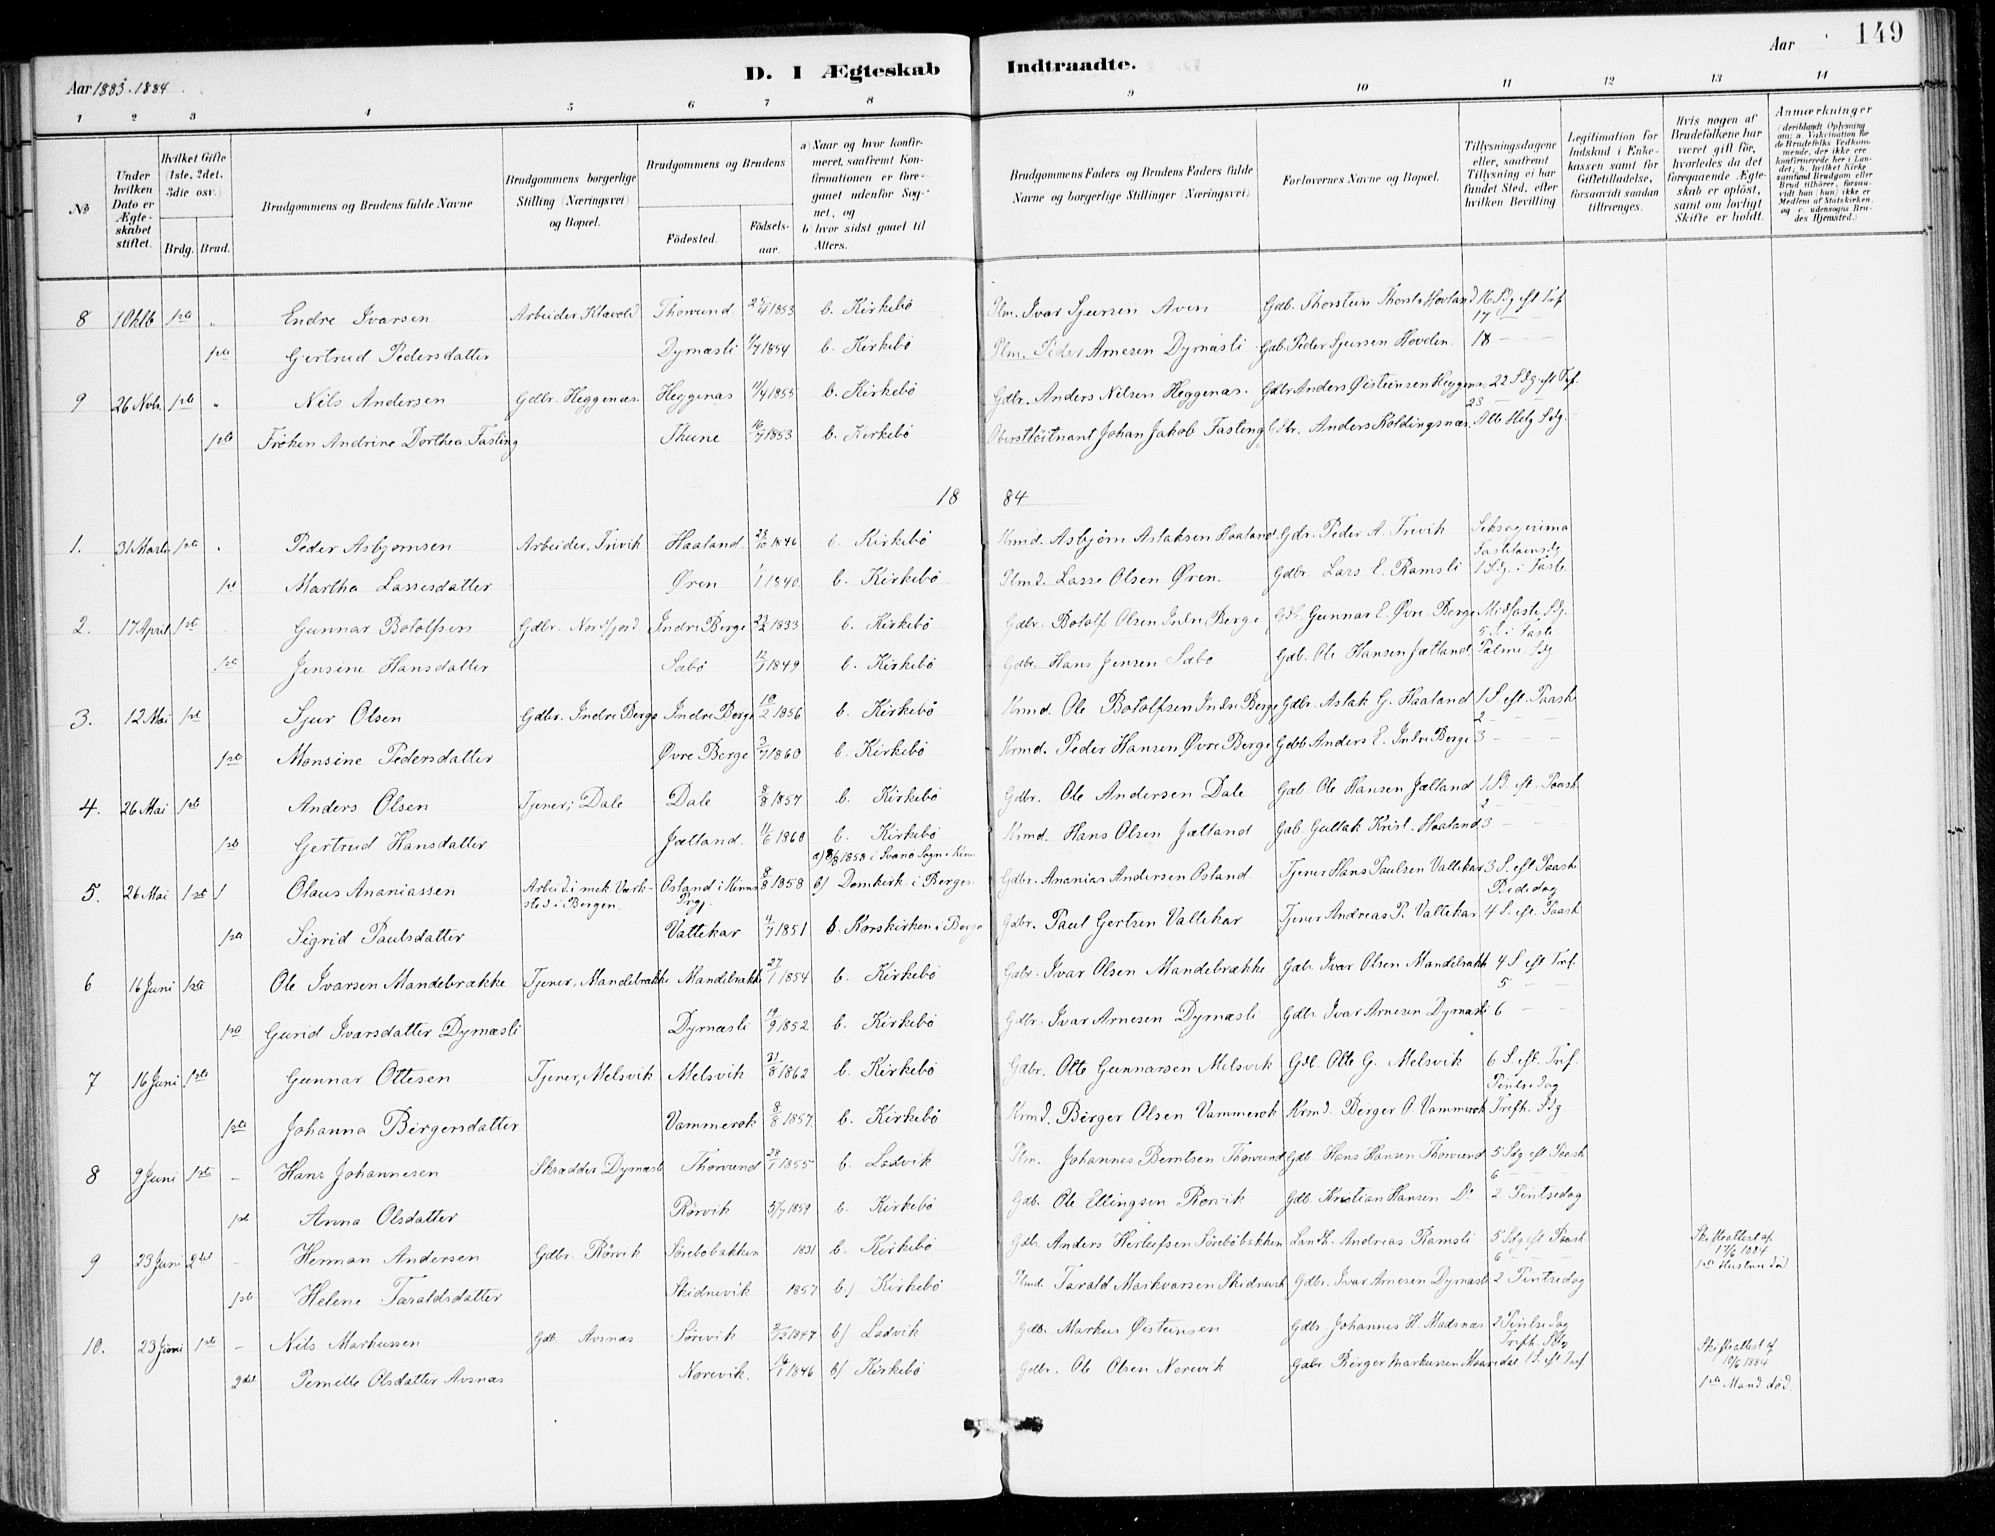 149
Aar 1883. 1884
D. I Ægteskab Indtraadte.
Aar
1 2 3 4 5 6 7 8 9 10 11 12 13 14
№
Under hvilken Dato er Ægteskabet stiftet.
Hvilket Gifte (1ste, 2det, 3die osv.)
Brdg. Brud.
Brudgommens og Brudens fulde Navne
Brudgommens borgerlige Stilling (Næringsvei) og Bopæl.
Brudgommens og Brudens
Födested. Födsels-aar.
a) Naar og hvor konfirmeret, saafremt Konfirmationen er foregaaet udenfor Sognet, og
b hvor sidst gaaet til Alters.
Brudgommens Faders og Brudens Faders fulde Navne og borgerlige Stillinger (Næringsvei)
Forlovernes Navne og Bopæl.
Tillysningsdagene eller, saafremt Tillysning ei har fundet Sted, efter hvilken Bevilling
Legitimation for Indskud i Enkekassen samt for Giftetilladelse, forsaavidt saadan tiltrænges.
Hvis nogen af Brudefolkene har været gift för, hvorledes da det foregaaende Ægteskab er oplöst, samt om lovligt Skifte er holdt.
Anmærkninger (deriblandt Oplysning om: a. Vakcination for de Brudefolks Vedkommende, der ikke ere konfirmerede her i Landet; b. hvilket Kirkesamfund Brudgom eller Brud tilhörer, forsaavidt han (hun) ikke er Medlem af Statskirken, og c. udensogns Brudes Hjemsted.)
8 1 Oktb 1ste Endre Ivarsen Arbeider Thorsund 1853 b. Kirkebö Plm. Ivar Sjursen Aven Gdb. Thorstein Thorst. Hovland 16 Sdg eft Trf.
17 — —
1ste Gertrud Pedersdatter Dyrnæsli 1854 b. Kirkebö Plm. Peder Arnesen Dyrnæsli Gdb. Peder Sjursen Hovden. 18 — —
9 26 Novb. 1ste Nils Andersen Gdbr. Heggenæs. Heggenæs 11/4 1855 b. Kirkebö Gdbr. Anders Nilsen Heggenæs. Gdbr Anders Øisteinsen Heggenæs 22 Sdg. eft Trf.
23 — —
1ste Fröken Andrine Dorthea Fasting Thune 1853 b. Kirkebö Oberstlöitnant Johan Jakob Fasting Anders Koldingsnæs. Alle Helg. Sdg.
18 84
1. 31 Marts 1ste Peder Asbjørnsen Arbeider, Trivik Haaland 1846 b. Kirkebö Krmd. Asbjørn Aslaksen Haaland Gdr. Peder A. Trivik Seksagesima
Fastelavnsdg
1ste Martha Lassesdatter Øren 1/1 1840 b. Kirkebö Plmd. Lasse Olsen Øren. Gdbr. Lars E. Ramsli 1 Sdg. i Faste
2. 17 April 1ste Gunnar Botolfsen Gdbr. Nordfjord Indre Berge 22/2 1833 b. Kirkebö Gdbr. Botolf Olsen Indre Berge Gdb. Gunnar E. Øvre Berge Midfaste Sdg.
5 S. i Faste
1ste Jensine Hansdatter Sæbö 1849 b. Kirkebö Gdbr. Hans Jensen Sæbö Gdb. Ole Hansen Jælland Palme Sdg
3. 12 Mai 1ste Sjur Olsen Gdbr. Indre Berge Indre Berge 10/2 1856 b. Kirkebö Krmd. Ole Botolfsen Indre Berge Gdbr. Aslak G. Haaland 1 S. eft. Paask
2 — —
1ste Monsine Pedersdatter Øvre Berge 3/7 1860 b. Kirkebö Krmd. Peder Hansen Øvre Berge Gdb Anders E. Indre Berge 3 — —
4. 26 Mai 1ste Anders Olsen Tjener, Dale Dale 8/8 1857 b. Kirkebö Gdbr. Ole Andersen Dale Gdb. Ole Hansen Jælland 1 S. eft. Paask
2 —
1ste Gertrud Hansdatter Jælland. 11/6 1860 b. Kirkebö Krmd. Hans Olsen Jælland Gdb. Gullak Krist. Haaland 3 — —
a) 8/8 1858 i Svanö Sogn i Kinn
5. 26 Mai 1ste Olaus Ananiassen Arbeid. i mek. Værksted i Bergen. Osland i Kinns Prgj. 8/8 1858 b) Domkirk. i Bergen Gdbr. Ananias Andersen Osland Tjener Hans Paulsen Vallekar 3 S. eft Paask
Bededag
1ste Sigrid Paulsdatter Vallekar 4/7 1851 b. Korskirken i Bergen Gdbr. Paul Gertsen Vallekar Tjener Andreas P. Vallekar 4 S. eft. Paask
6 16 Juni 1ste Ole Ivarsen Mandebrække Tjener, Mandebrække Mandebrække 27/1 1854 b. Kirkebö Gdbr. Ivar Olsen Mandebrække Gdbr. Ivar Olsen Mandebrække 4 S. eft Trf.
5 — —
1ste Gurid Ivarsdatter Dyrnæsli Dyrnæsli 19/9 1852 b. Kirkebö Gdbr. Ivar Arnesen Dyrnæsli Gdbr. Ivar Arnesen Dyrnæsli 6 — —
7 16 Juni 1ste Gunnar Ottesen Tjener, Melsvik Melsvik 31/8 1862 b. Kirkebö Gdbr. Otte Gunnarsen Melsvik Gdb. Otte G. Melsvik 6 S. eft. Trf.
Pintsedag
1ste Johanna Birgersdatter Vammerok 8/8 1857. b. Kirkebö Krmd. Birger Olsen Vammerok Krmd. Birger O. Vammerok Trefh. Sdg
8 9 Juni 1ste Hans Johannesen Skrædder Dyrnæsli Thorsund 28/1 1855 b. Ladvik Plm. Johannes Berntsen Thorsund Gdb. Hans Hansen Thorsund 5 Sdg eft Paask
6 — —
1ste Anna Olsdatter Rörvik 5/7 1859 b. Kirkebö Gdb. Ole Ellingsen Rörvik Gdb. Kristian Hansen Do 2 Pintsedag
9 23 Juni 2det Herman Andersen Gdbr. Rörvik Sörebobakken 1831 b. Kirkebö Gdb. Anders Herlufsen Söreböbakken Landh. Andreas Ramsli 5 Sdg eft Paask Skifteattest af 17/6 1884
6 — — 1ste Hustru död
1ste Helene Taraldsdatter Skidnevik 1857 b) Kirkebö Plmd. Tarald Markvarsen Skidnevik Gdbr. Ivar Arnesen Dyrnæsli 2 Pintsedag
10. 23 Juni 1ste Nils Markussen Gdb. Avsnæs Sörevik 1847 b) Ladvik Gdb. Markus Øisteinsen Gdbr. Johannes H. Madsnæs 2 Pintsedag
Trefh. Sdg Skifteattest af 10/6 1884
2det Pernille Olsdatter Avsnæs Norevik. 1846 b) Kirkebö Gdbr. Ole Olsen Norevik Gdbr. Birger Markussen 1 S. eft Tref 1ste Mand död.